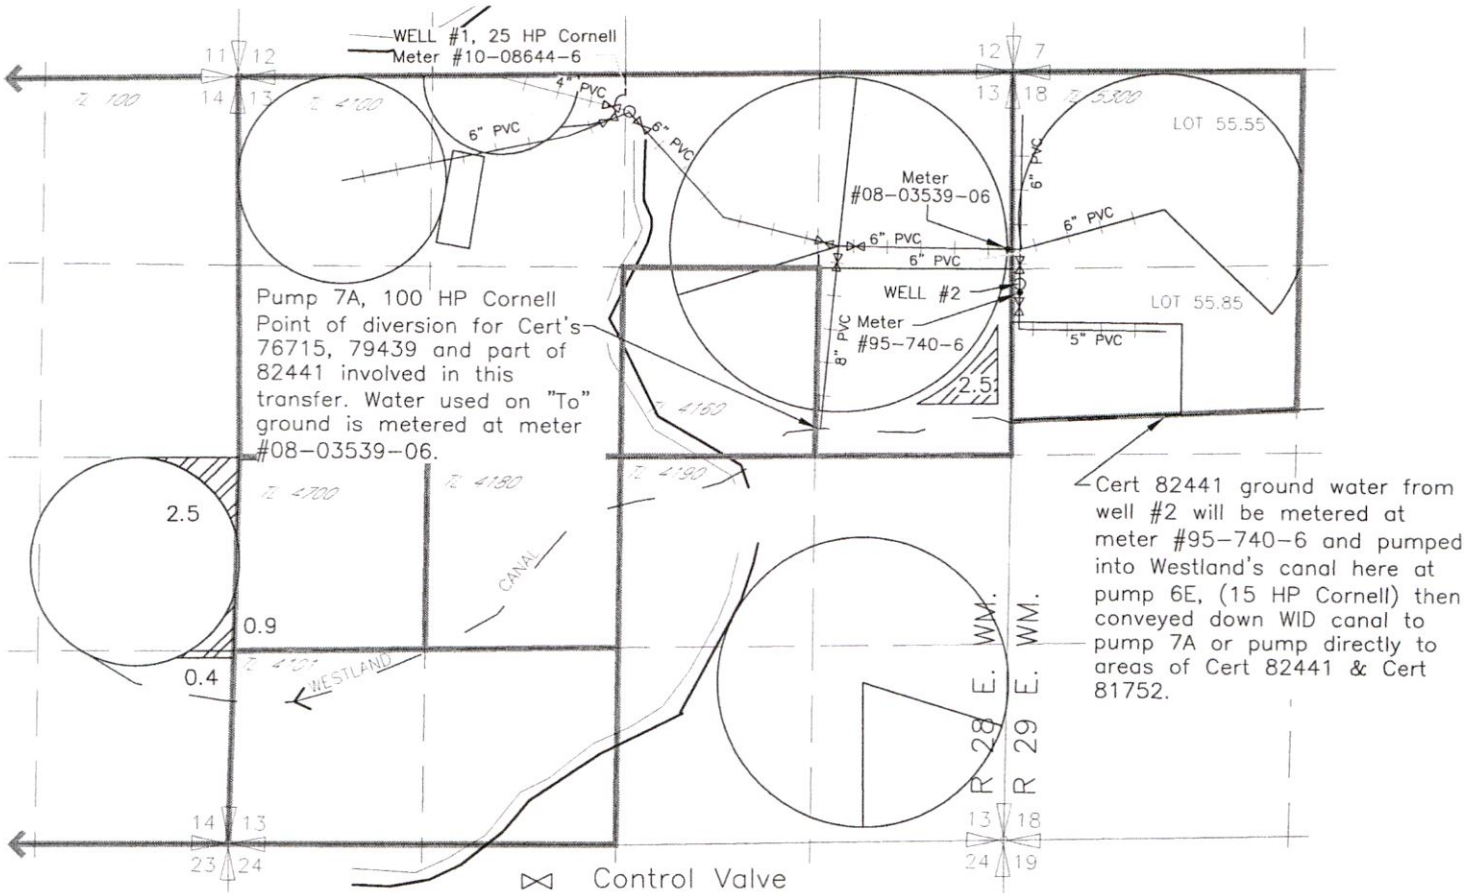 WELL #1, 25 HP Cornell
Meter #10-08644-6
11 12
14 13
12 7
13 18
TL 100
TL 4100
TL 5300
LOT 55.55
4" PVC
6" PVC
6" PVC
6" PVC
Meter
#08-03539-06
6" PVC
6" PVC
6" PVC
WELL #2
Meter
#95-740-6
8" PVC
LOT 55.85
5" PVC
2.5
Pump 7A, 100 HP Cornell
Point of diversion for Cert's
76715, 79439 and part of
82441 involved in this
transfer. Water used on "To"
ground is metered at meter
#08-03539-06.
TL 4160
TL 4700
TL 4180
TL 4190
2.5
CANAL
0.9
0.4
TL 4101
WESTLAND
Cert 82441 ground water from
well #2 will be metered at
meter #95-740-6 and pumped
into Westland's canal here at
pump 6E, (15 HP Cornell) then
conveyed down WID canal to
pump 7A or pump directly to
areas of Cert 82441 & Cert
81752.
R 28 E. WM.
R 29 E. WM.
14 13
23 24
13 18
24 19
Control Valve